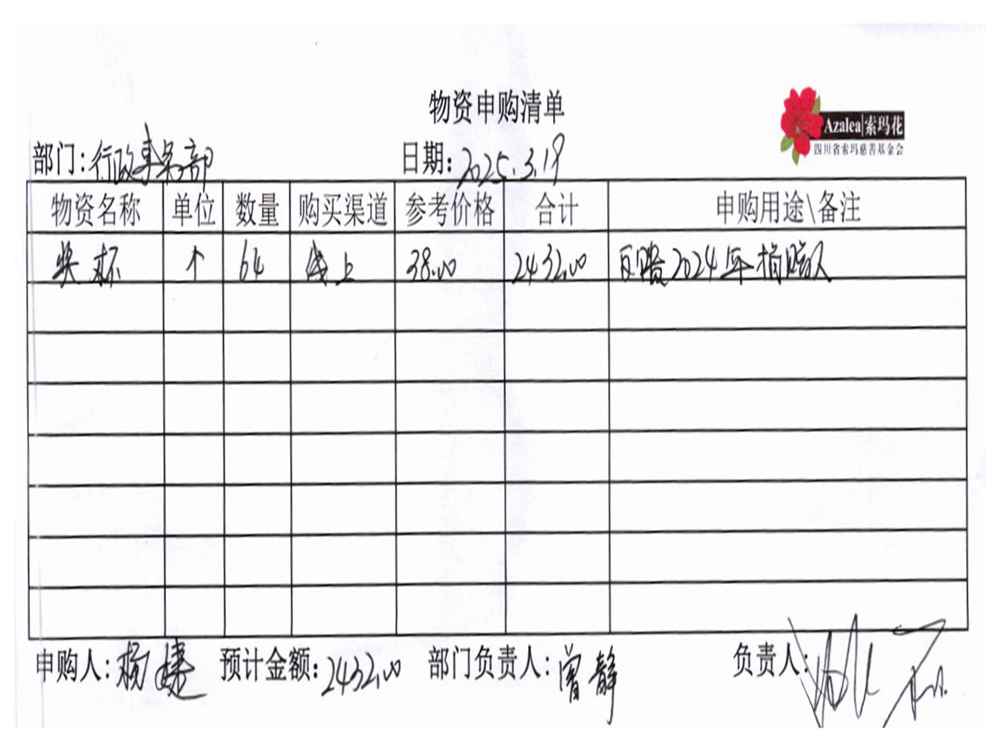 物资申购清单
Azalea 索玛花
四川省索玛慈善基金会
部门:行政事务部 日期:2025.3.19
物资名称 单位 数量 购买渠道 参考价格 合计 申购用途\备注
奖杯 个 64 线上 38.00 2432.00 回赠2024年捐赠人
申购人:杨婕 预计金额:2432.00 部门负责人:曾静 负责人: